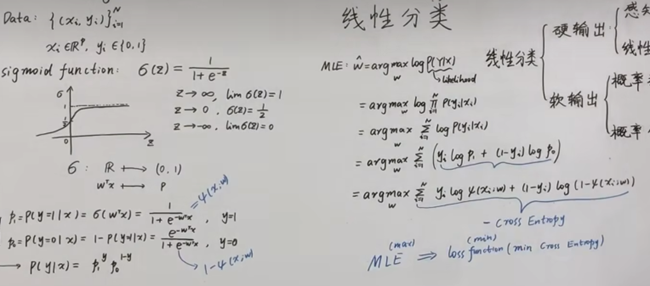 Data: {(xᵢ, yᵢ)}ᵢ₌₁ᴺ
xᵢ ∈ ℝᵖ, yᵢ ∈ {0,1}
sigmoid function: σ(z) = 1 / (1 + e^{-z})
z → ∞, lim σ(z) = 1
z → 0, σ(z) = 1/2
z → -∞, lim σ(z) = 0
σ
1
z
σ: ℝ ⟼ (0,1)
wᵀx ⟼ p
p₁ = P(y=1|x) = σ(wᵀx) = 1 / (1 + e^{-wᵀx}), y=1
= ψ(x;w)
p₀ = P(y=0|x) = 1 - P(y=1|x) = e^{-wᵀx} / (1 + e^{-wᵀx}), y=0
1 - ψ(x;w)
→ P(y|x) = p₁^y p₀^{1-y}
线性分类
MLE: ŵ = argmax_w log P(Y|X)
likelihood
= argmax_w log ∏ᵢ₌₁ᴺ P(yᵢ|xᵢ)
= argmax_w ∑ᵢ₌₁ᴺ log P(yᵢ|xᵢ)
= argmax_w ∑ᵢ₌₁ᴺ (yᵢ log p₁ + (1-yᵢ) log p₀)
= argmax_w ∑ᵢ₌₁ᴺ yᵢ log ψ(xᵢ;w) + (1-yᵢ) log (1-ψ(xᵢ;w))
- Cross Entropy
MLE (max) ⇒ loss function (min) (min Cross Entropy)
线性分类
硬输出
感
线性
软输出
概率
概率